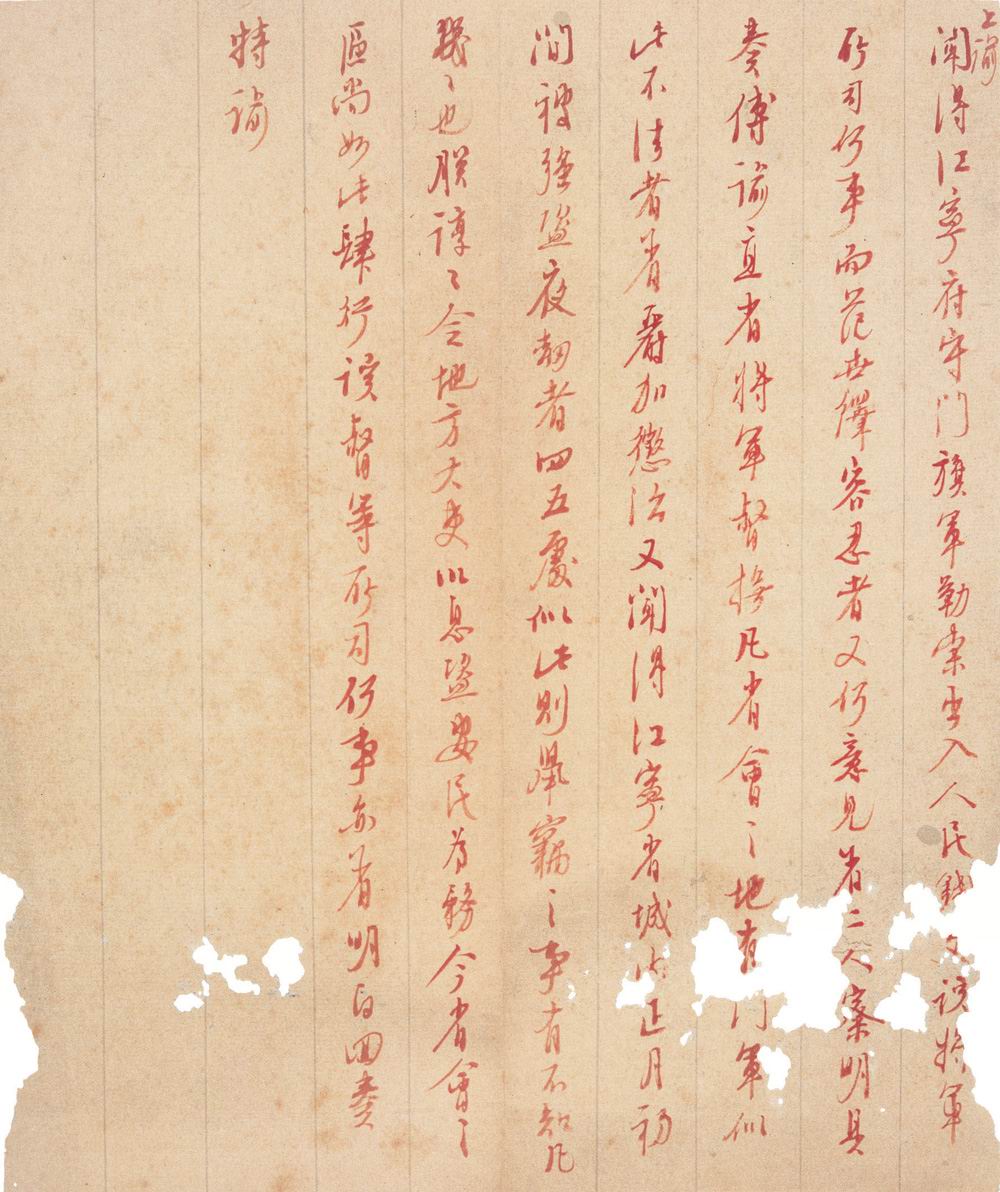 上諭
聞得江寧府守門旗軍勒索出入人民錢文該將軍
所司何事而范世繹容忍者又何意見着二人察明具
奏傳諭直省將軍督撫凡省會之地有門軍似
此不法者着嚴加懲治又聞得江寧省城內正月初
間被強盜夜劫者四五處似此則鼠竊之事有不知凡
幾々也朕諄々令地方大吏以息盜安民為務今省會之
區尚如此肆行該督等所司何事亦着明白回奏
特諭